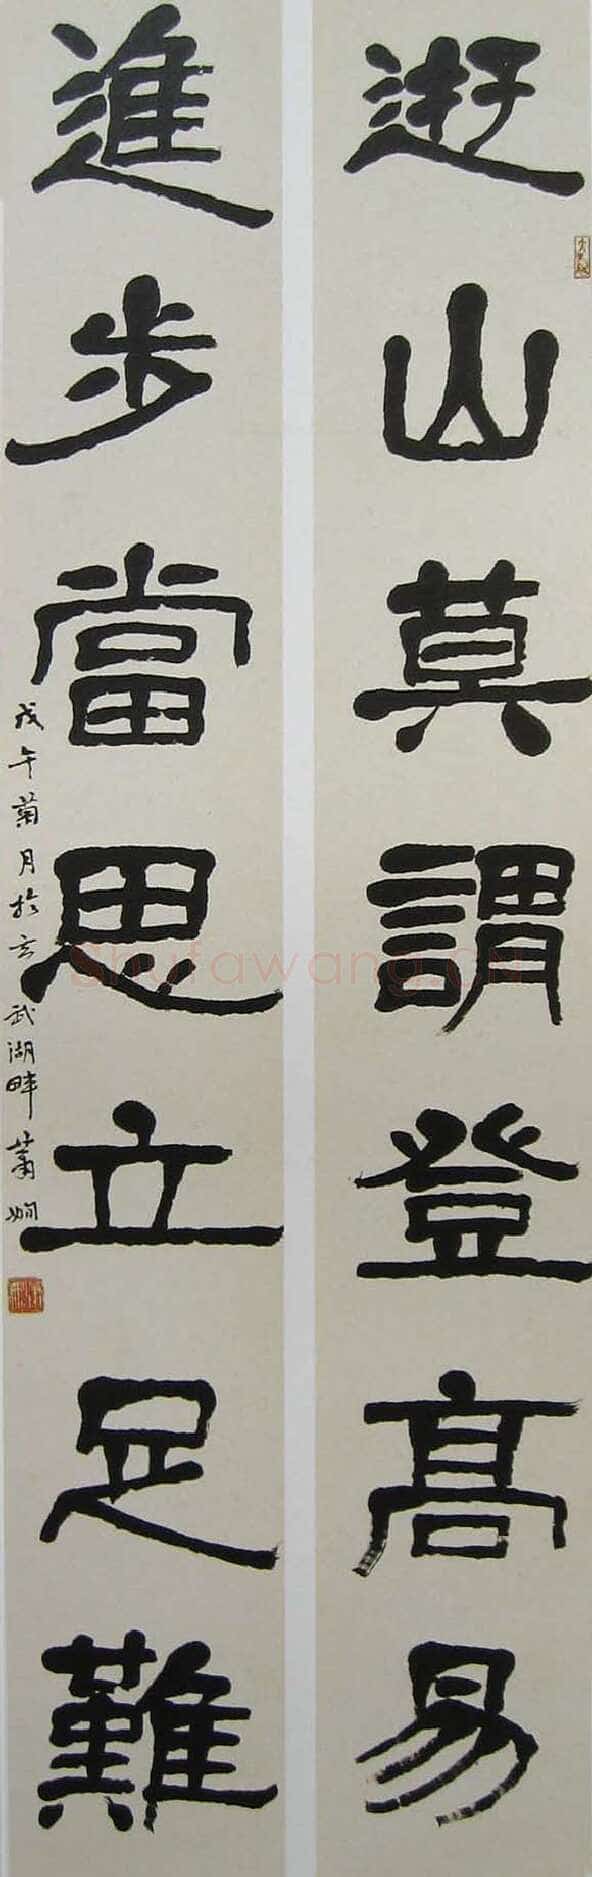 遊山莫謂登高易
進步當思立足難
戊午菊月於玄武湖畔蕭嫻
Shufawang.cn